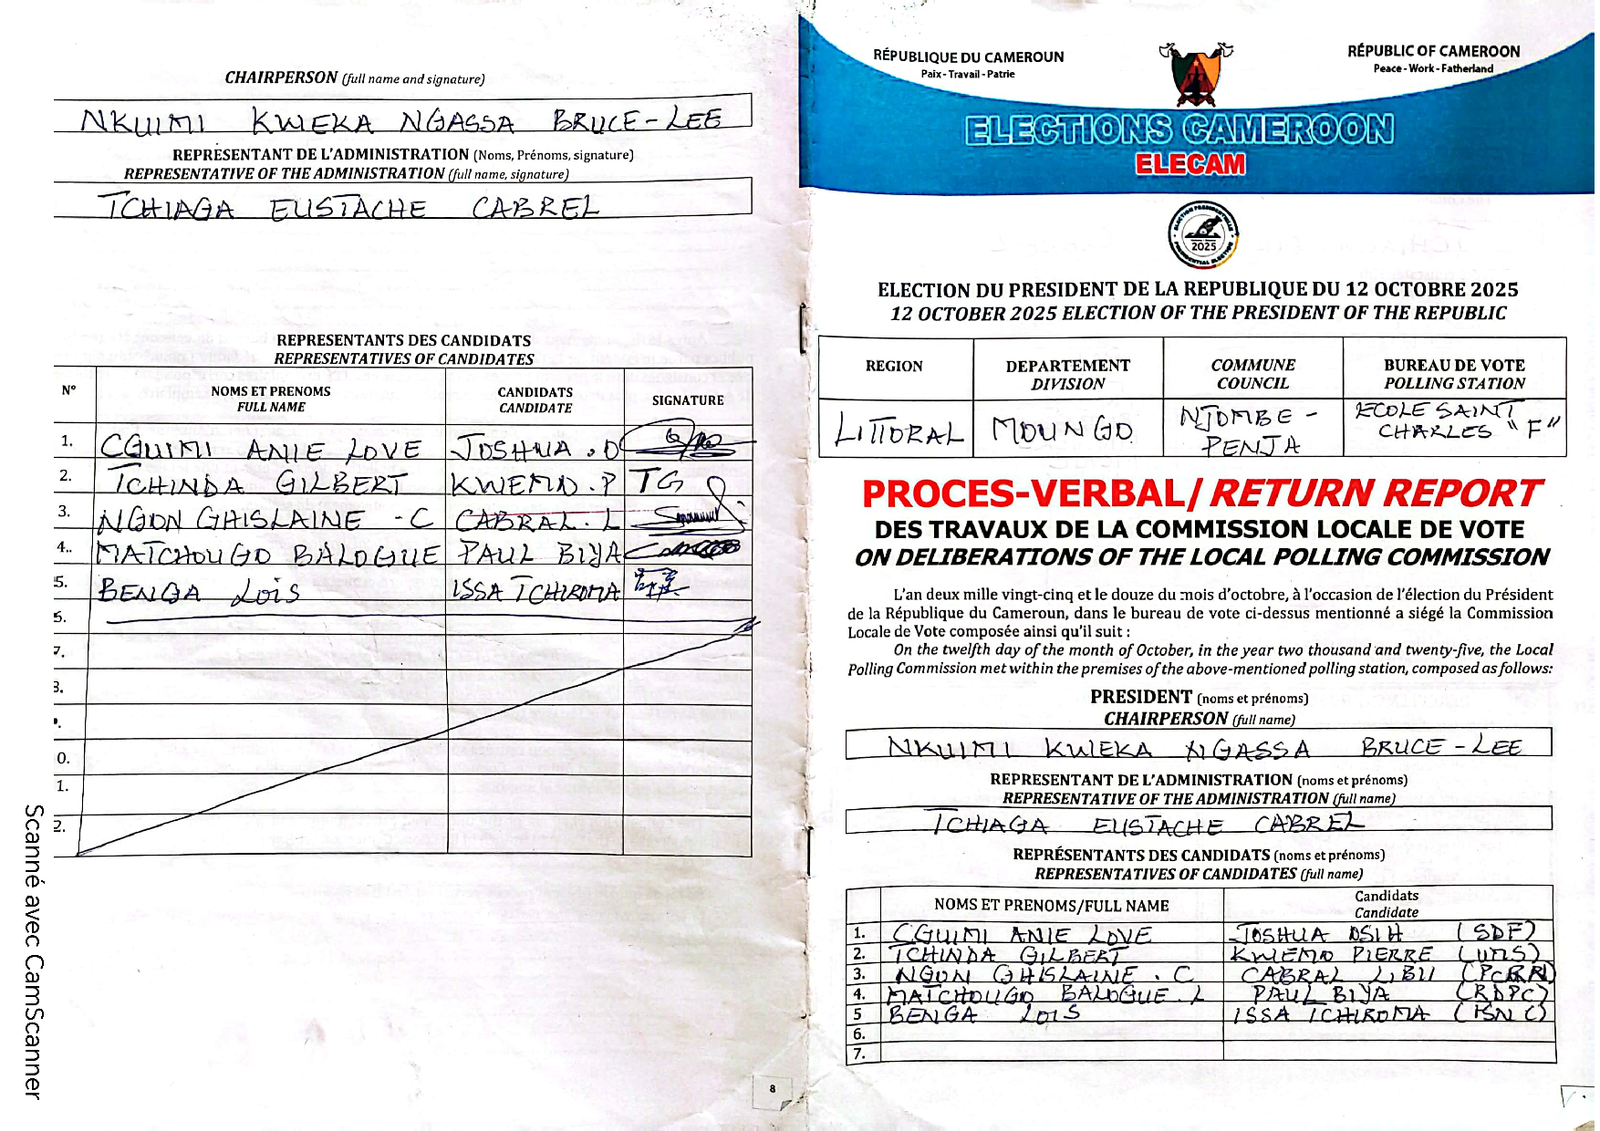 CHAIRPERSON (full name and signature)
NKUIMI KWEKA NGASSA BRUCE-LEE
REPRÉSENTANT DE L'ADMINISTRATION (Noms, Prénoms, signature)
REPRESENTATIVE OF THE ADMINISTRATION (full name, signature)
TCHIAGA EUSTACHE CABREL
REPRESENTANTS DES CANDIDATS
REPRESENTATIVES OF CANDIDATES
N° NOMS ET PRENOMS CANDIDATS SIGNATURE
FULL NAME CANDIDATE
1. CGUIMI ANIE LOVE JOSHUA . O
2. TCHINDA GILBERT KWEMO . P TG
3. NGON GHISLAINE - C CABRAL . L
4.. MATCHOUGO BALOGUE PAUL BIYA
5. BENGA LOIS ISSA TCHIROMA
6.
7.
8.
0.
1.
2.
Scanné avec CamScanner
8
RÉPUBLIQUE DU CAMEROUN
Paix - Travail - Patrie
RÉPUBLIC OF CAMEROON
Peace - Work - Fatherland
ELECTIONS CAMEROON
ELECAM
ELECTION PRESIDENTIELLE
2025
PRESIDENTIAL ELECTION
ELECTION DU PRESIDENT DE LA REPUBLIQUE DU 12 OCTOBRE 2025
12 OCTOBER 2025 ELECTION OF THE PRESIDENT OF THE REPUBLIC
REGION DEPARTEMENT COMMUNE BUREAU DE VOTE
DIVISION COUNCIL POLLING STATION
LITTORAL MOUNGO NJOMBE - PENJA ECOLE SAINT CHARLES "F"
PROCES-VERBAL/ RETURN REPORT
DES TRAVAUX DE LA COMMISSION LOCALE DE VOTE
ON DELIBERATIONS OF THE LOCAL POLLING COMMISSION
L'an deux mille vingt-cinq et le douze du mois d'octobre, à l'occasion de l'élection du Président
de la République du Cameroun, dans le bureau de vote ci-dessus mentionné a siégé la Commission
Locale de Vote composée ainsi qu'il suit :
On the twelfth day of the month of October, in the year two thousand and twenty-five, the Local
Polling Commission met within the premises of the above-mentioned polling station, composed as follows:
PRESIDENT (noms et prénoms)
CHAIRPERSON (full name)
NKUIMI KWEKA NGASSA BRUCE - LEE
REPRESENTANT DE L'ADMINISTRATION (noms et prénoms)
REPRESENTATIVE OF THE ADMINISTRATION (full name)
TCHIAGA EUSTACHE CABREL
REPRÉSENTANTS DES CANDIDATS (noms et prénoms)
REPRESENTATIVES OF CANDIDATES (full name)
NOMS ET PRENOMS/FULL NAME Candidats
Candidate
1. CGUIMI ANIE LOVE JOSHUA OSIH (SDF)
2. TCHINDA GILBERT KWEMO PIERRE (UMS)
3. NGON GHISLAINE . C CABRAL LIBII
4. MATCHOUGO BALOGUE . L PAUL BIYA (RDPC)
5 BENGA LOIS ISSA TCHIROMA (FSNC)
6.
7.